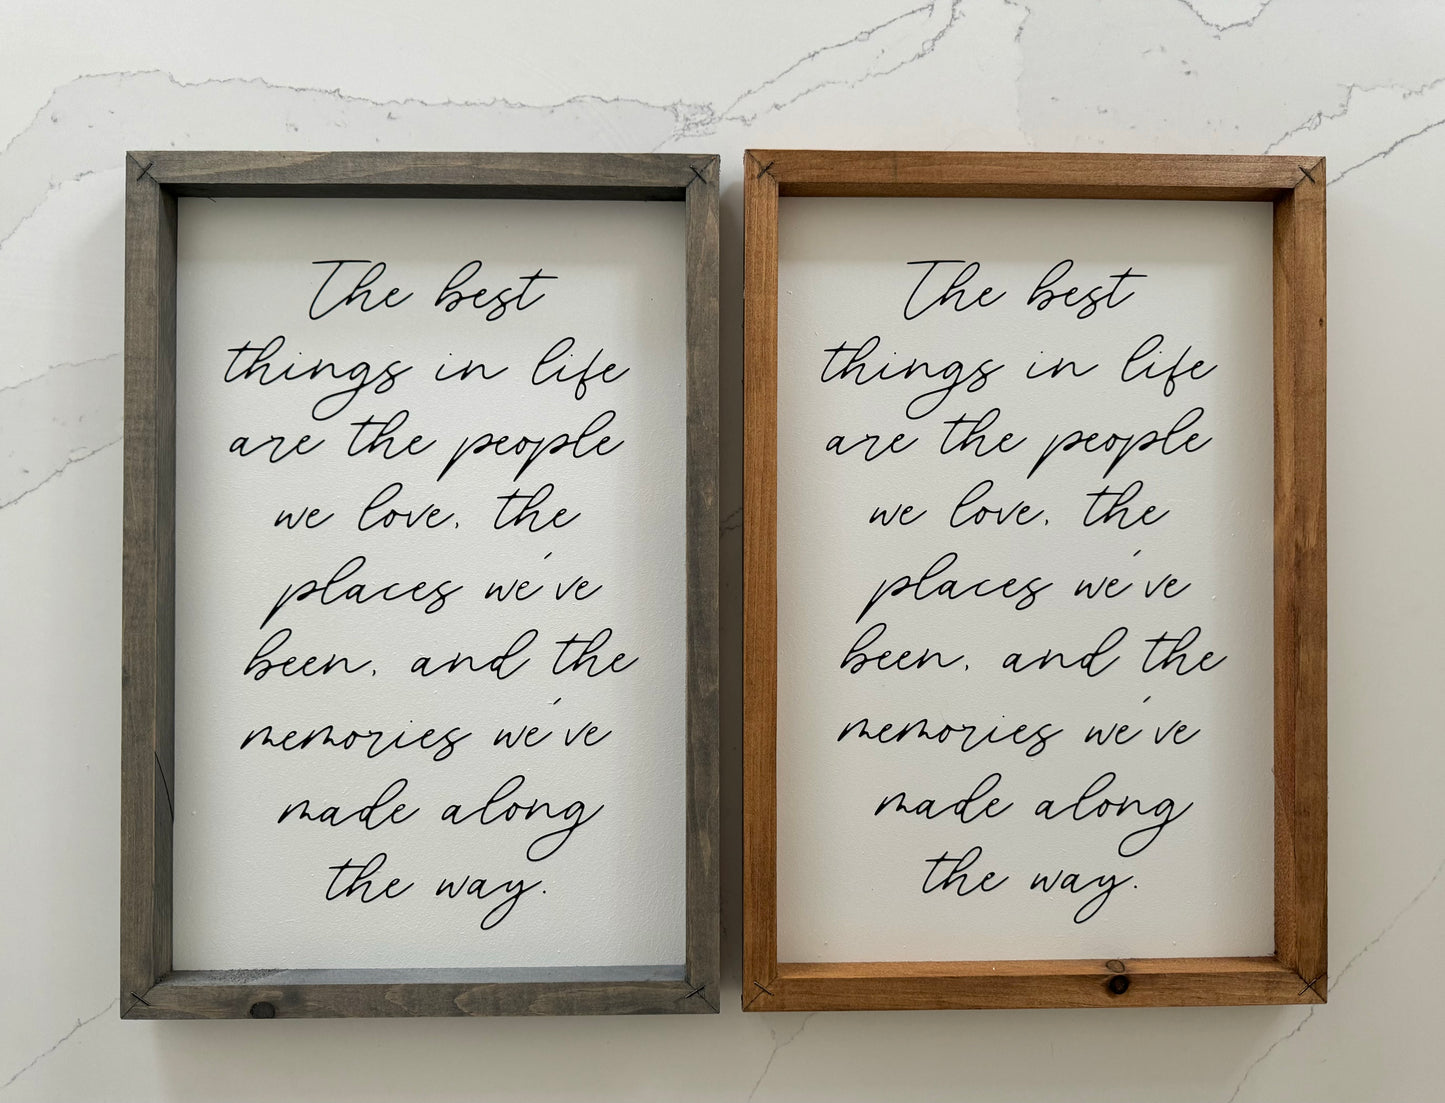 The best
things in life
are the people
we love, the
places we've
been, and the
memories we've
made along
the way.
The best
things in life
are the people
we love, the
places we've
been, and the
memories we've
made along
the way.